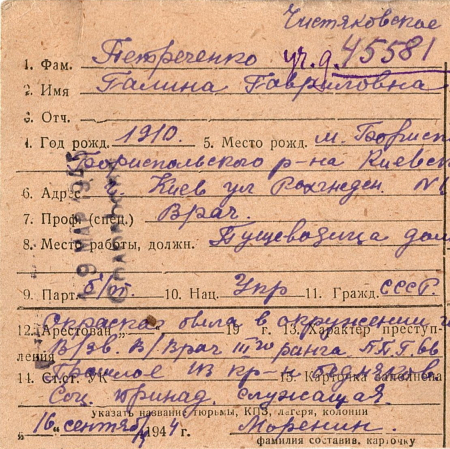 Чистяковское
1. Фам. Петреченко уч.д. 45581
2. Имя Галина Гавриловна
3. Отч.
4. Год рожд. 1910. 5. Место рожд. м. Борисп
Бориспольского р-на Киевск
6. Адрес Киев ул
7. Проф. (спец.) Врач.
8. Место работы, должн.
9. Парт. б/п. 10. Нац. Укр 11. Гражд. СССР
12. Арестован „ “ 19 г. 13. Характер преступ-
была в окружении
ления В/зв. В/Врач III го ранга
14. Ст.ст. УК 15. Карточка заполнена
Прошлое из кр-н бедняков
Соц. служащая.
указать название тюрьмы, КПЗ, лагеря, колонии
„16“ сентября 1944 г. Моренин.
фамилия составив. карточку